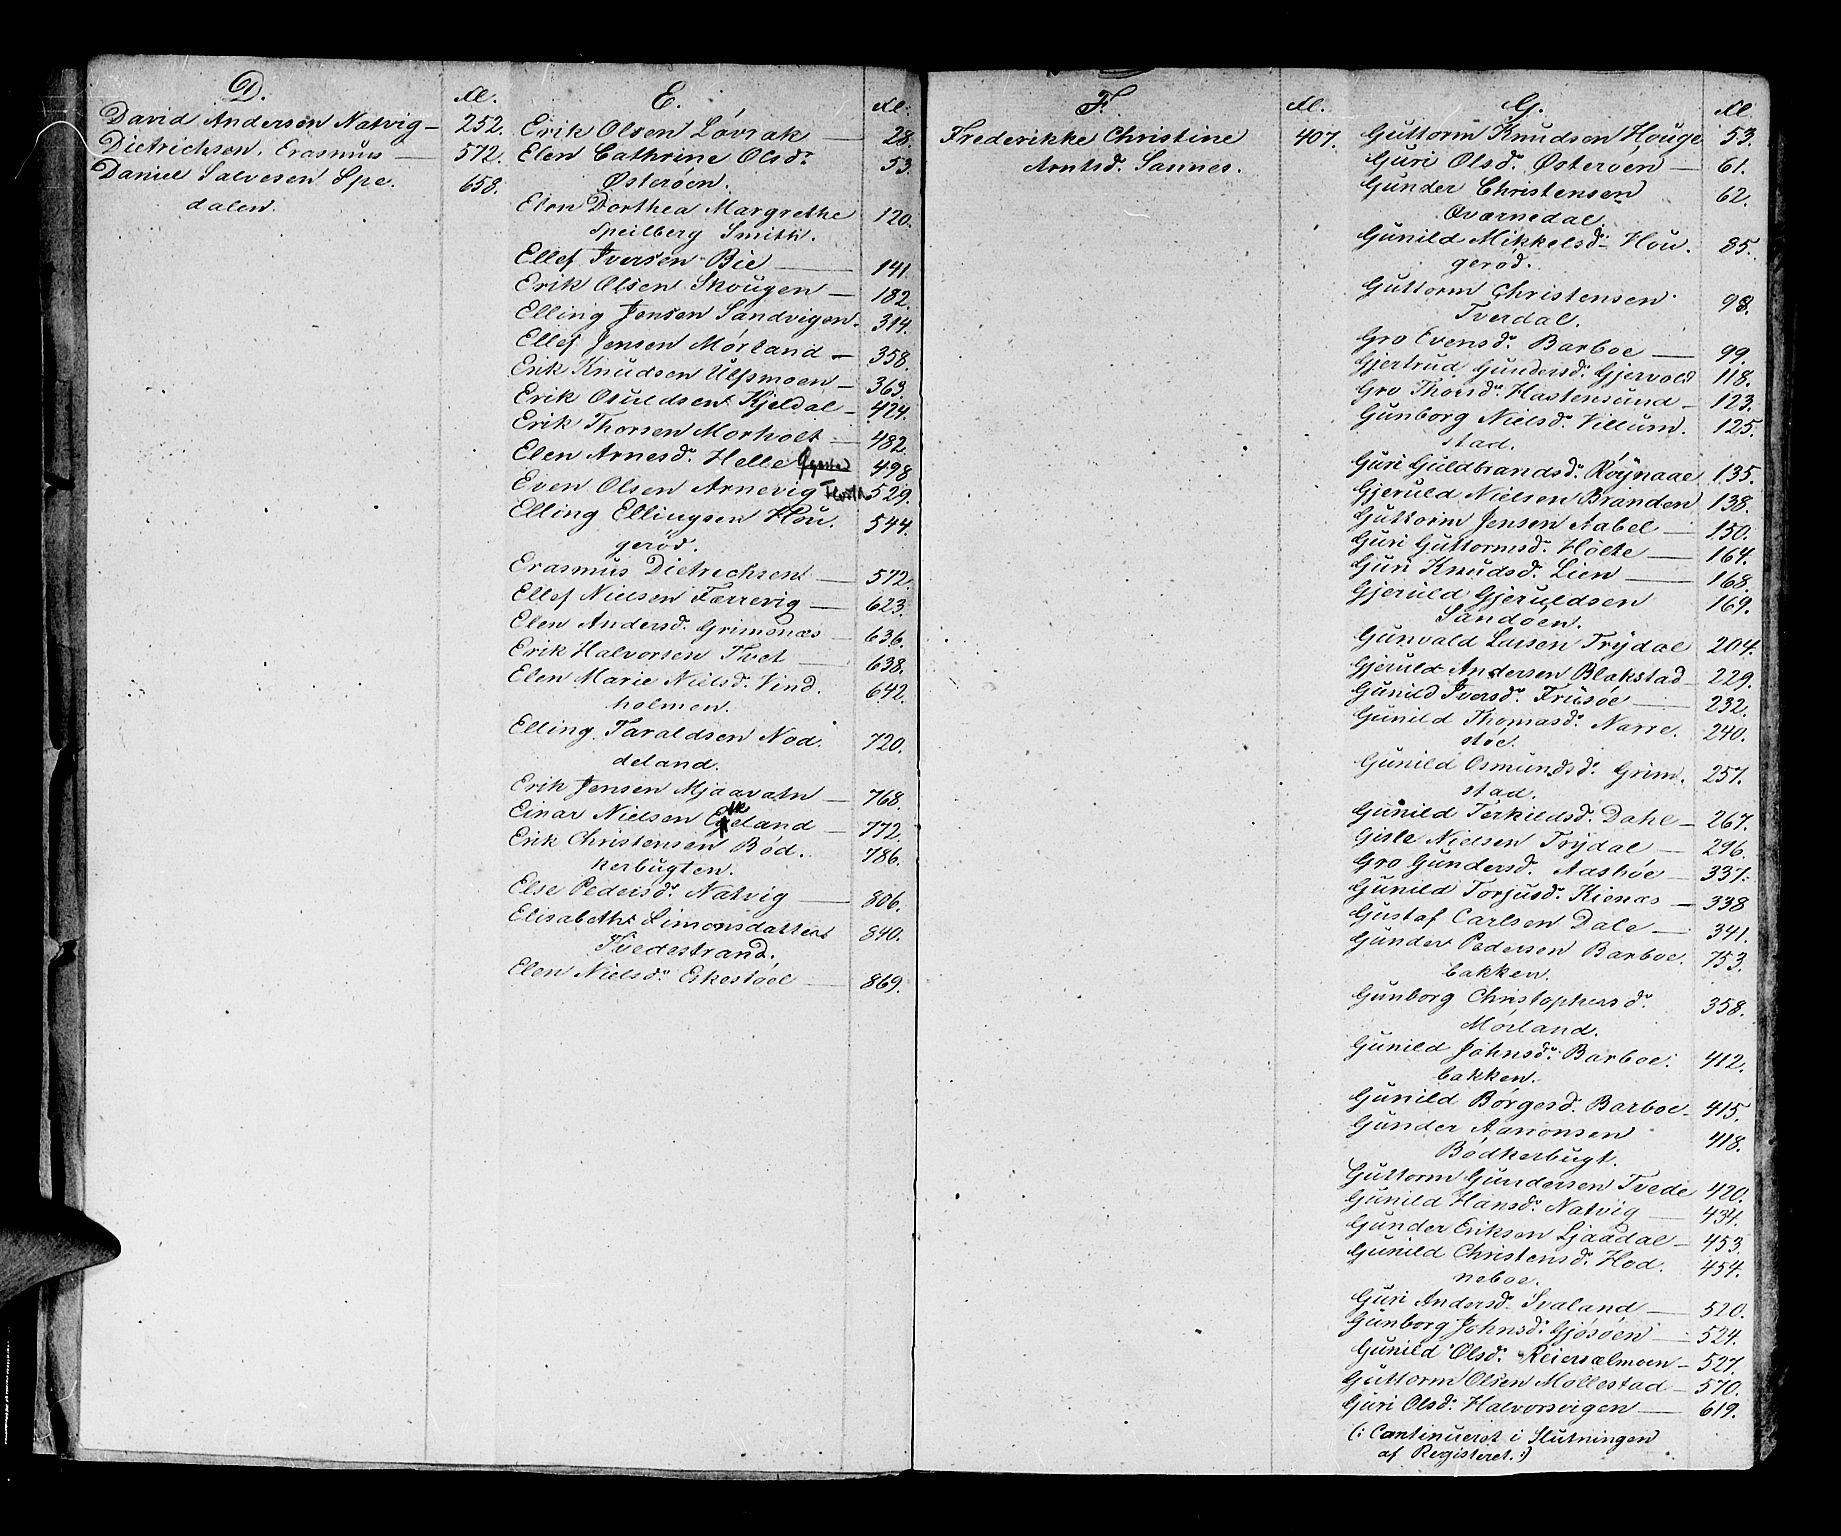 D.
David Andersen Natvig — 252.
Dietrichson, Erasmus — 572.
Daniel Salvesen Spe. 658.
dalen.
E.
Erik Olsen Løvrak — 28.
Elen Cathrine Olsd. 53.
Østerøen.
Elen Dorthea Margrethe 120.
Speilberg Smith.
Ellef Iversen Bie — 141.
Erik Olsen Skougen — 182.
Elling Jensen Sandvigen. 314.
Ellef Jensen Mørland — 358.
Erik Knudsen Ulfsmoen — 363.
Erik Osuldsen Kjeldal — 424.
Erik Thorsen Morholt — 482.
Elen Arnesd. Helle 498
Even Olsen Arnevig 529.
Elling Ellingsen Hou. 544.
gerød.
Erasmus Dietrichsen — 572.
Ellef Nielsen Færrevig — 623.
Elen Andersd. Grimsnæs — 636.
Erik Halvorsen Tvet — 638.
Elen Marie Nielsd. Vind. 642.
holmen.
Elling Taraldsen Nod. 720.
deland.
Erik Jensen Mjaavatn — 768.
Einar Nielsen — 772.
Erik Christensen Bød. 786.
kerbugten.
Else Pedersd. Natvig — 806.
Elisabeth Simonsdatter 840.
Tvedestrand.
Elen Nielsd. Eskestøel — 869.
F.
Frederikke Christine 407.
Arntsd. Sannes.
G.
Guttorm Knudsen Houge 53.
Guri Olsd. Østerøen — 61.
Gunder Christensen 62.
Qværnedal.
Gunild Mikkelsd. Hou. 85.
gerød.
Guttorm Christensen 98.
Tverdal.
Gro Evensd. Barboe — 99.
Gjertrud Gundersd. Gjervold 118.
Gro Thorsd. Hastensund — 123.
Gunborg Nielsd. Villum. 125.
stad.
Guri Guldbrandsd. Røÿnaae 135.
Gjeruld Nielsen Branden 138.
Guttorm Jensen Aabel — 150.
Guri Guttormsd. Holte — 164.
Guri Knudsd. Lien — 168.
Gjeruld Gjeruldsen 169.
Sandøen.
Gunvald Larsen Trÿdal 204.
Gjeruld Andersen Blakstad 229.
Gunild Iversd. Frusøe — 232.
Gunild Thomasd. Narre. 240.
støe.
Gunild Osmundsd. Grim. 257.
stad.
Gunild Terkildsd. Dahl — 267.
Gisle Nielsen Trÿdal — 296.
Gro Gundersd. Aashøe — 337.
Gunild Torjusd. Kienæs — 338
Gustaf Carlsen Dale — 341.
Gunder Pedersen Barboe. 753.
bakken.
Gunborg Christophersd. 358.
Mørland.
Gunild Johnsd. Barboe. 412.
bakken.
Gunild Børgesd. Barboe — 415.
Gunder Aanonsen 418.
Bødkerbugt.
Guttorm Gundersen Tvede 420.
Gunild Hansd. Natvig — 434.
Gunder Eriksen Ljaadal — 453.
Gunild Christensd. Hod. 454.
neboe.
Guri Andersd. Svaland — 520.
Gunborg Johnsd. Gjøsøen — 524.
Gunild Olsd. Reiersølmoen — 527.
Guttorm Olsen Møllestad — 570.
Guri Olsd. Halvorsvigen — 619.
(: Continueret i Slutningen
af Registeret. :)